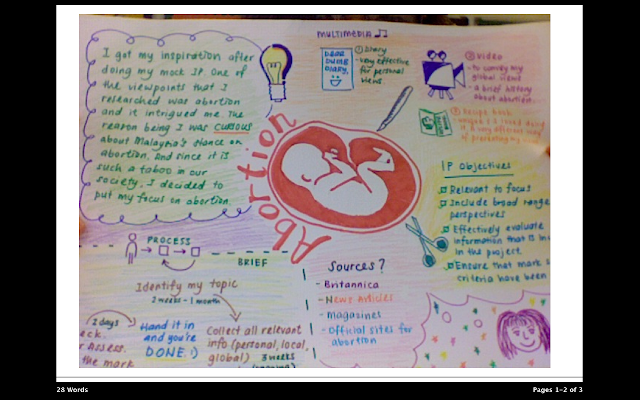 I got my inspiration after
doing my mock IP. One of
the viewpoints that I
researched was abortion
and it intrigued me. The
reason being I was CURIOUS
about Malaysia's stance on
abortion. And since it is
such a taboo in our
society, I decided to
put my focus on abortion.
MULTIMEDIA
DEAR
DUMB
DIARY,
① Diary
- very effective
for personal
views.
② VIDEO
- to convey my
global views
- a brief history
about abortion.
③ Recipe book
Abortion
IP Objectives
Relevant to focus
Include broad range
perspectives
Effectively evaluate
information that is in
in the project.
Ensure that mark s
criteria have been
PROCESS
BRIEF
Identify my topic
3 weeks - 1 month
2 days
eck.
Assess.
the mark
Hand it in
and you're
DONE :)
Collect all relevant
info (personal, local,
global) 3 weeks
Sources?
- Britannica
- News Articles
- Magazines
- Official sites for
abortion
28 Words
Pages 1-2 of 3